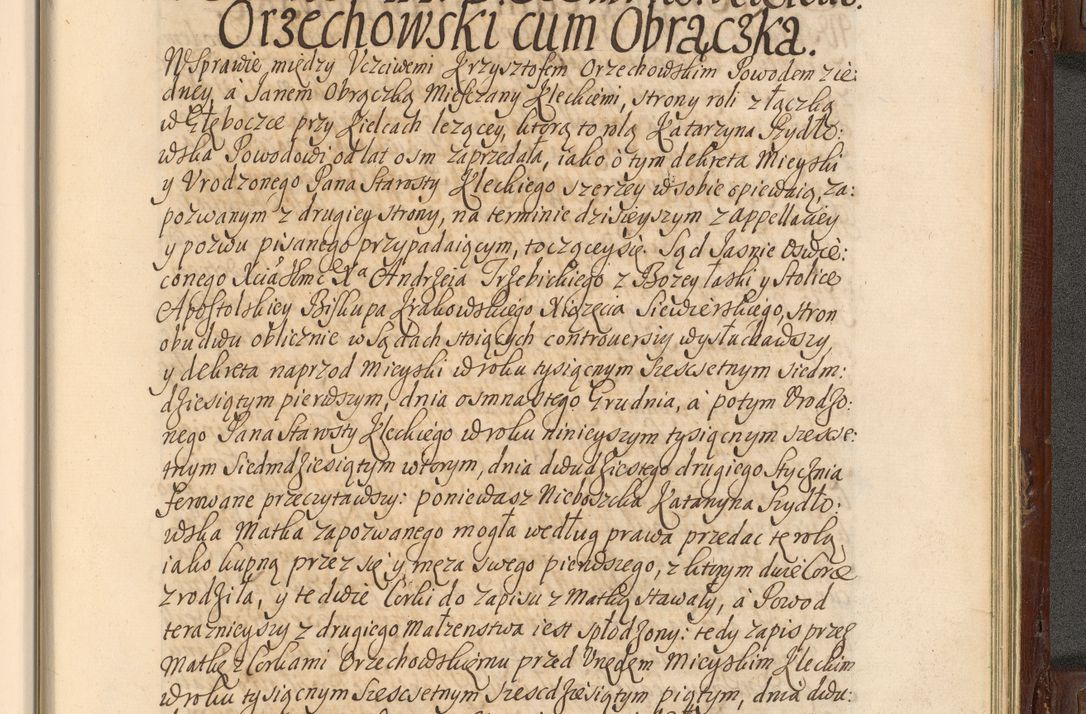 Orzechowski cum Obrączka.
W Sprawie między Uczciwemi Krzysztofem Orzechowskim Powodem z ie:
dney, a Janem Obrączką Mieszczany Kleckiemi, strony roli z łączką
w Głęboczce przy Kielcach leżącey, którą to rolą Katarzyna Szydło:
wska Powodowi od lat osm zaprzedała, iako o tym dekreta Mieyski
y Urodzonego Pana Starosty Kleckiego szerzey w sobie opiewaią, za:
pozwanym z drugiey strony, na terminie dzisieyszym z appellacyey
y pozwu pisanego przypadaiącym, toczącey się. Sąd Jasnie Oswie:
conego Xcia Jmć Xa Andrzeia Trzebickiego z Bozey łaski y Stolice
Apostolskiey Biskupa Krakowskiego Xiążęcia Siewierskiego, stron
obudwu oblicznie w Sądach stoiących controversiy wysłuchawszy,
y dekreta naprzod Mieyski w roku tysiącnym szescsetnym siedm:
dziesiątym pierwszym, dnia osmnastego Grudnia, a potym Urodzo:
nego Pana Starosty Kleckiego w roku ninieyszym tysiącnym szescse:
tnym Siedmdziesiątym wtorym, dnia dwudziestego drugiego Stycznia
ferowane przeczytawszy: ponieważ Nieboszczka Katarzyna Szydło:
wska Matka zapozwanego mogła według prawa przedac tę rolą
iako kupną przez się y męża swego pierwszego, z którym dwie Corce
zrodziła, y te dwie Corki do zapisu z Matką stawały, a Powod
teraznieyszy z drugiego Małżenstwa iest spłodzony: tedy zapis przez
Matkę z Corkami Orzechowskiemu przed Urzędem Mieyskim Kleckim
w roku tysiącnym szescsetnym szescdziesiątym piątym, dnia dwu: